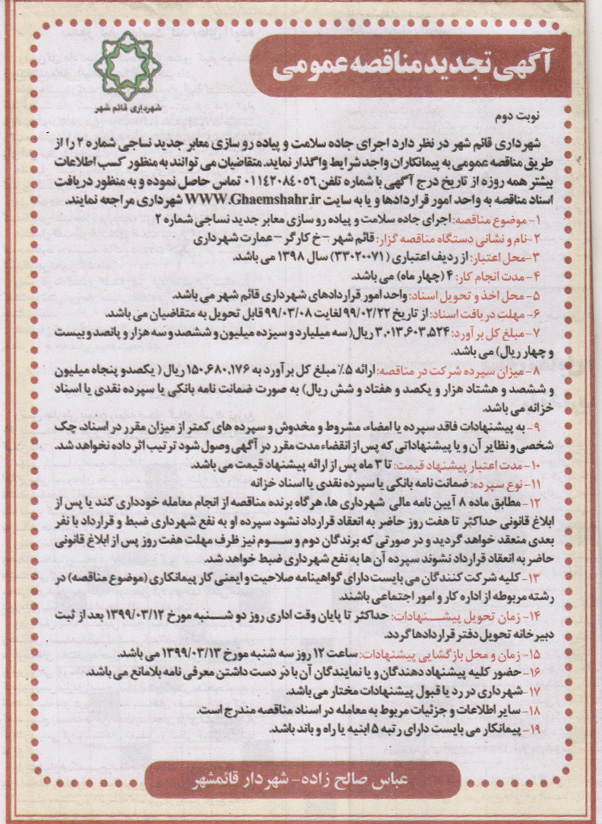 آگهی تجدید مناقصه عمومی
شهرداری قائم شهر
نوبت دوم
شهرداری قائم شهر در نظر دارد اجرای جاده سلامت و پیاده رو سازی معابر جدید نساجی شماره ۲ را از
طریق مناقصه عمومی به پیمانکاران واجد شرایط واگذار نماید. متقاضیان می توانند به منظور کسب اطلاعات
بیشتر همه روزه از تاریخ درج آگهی با شماره تلفن ۰۱۱۴۲۰۸۴۰۵۶ تماس حاصل نموده و به منظور دریافت
اسناد مناقصه به واحد امور قراردادها و یا به سایت WWW.Ghaemshahr.ir شهرداری مراجعه نمایند.
۱- موضوع مناقصه: اجرای جاده سلامت و پیاده رو سازی معابر جدید نساجی شماره ۲
۲- نام و نشانی دستگاه مناقصه گزار: قائم شهر – خ کارگر – عمارت شهرداری
۳- محل اعتبار: از ردیف اعتباری (۳۳۰۲۰۰۷۱) سال ۱۳۹۸ می باشد.
۴- مدت انجام کار: ۴ (چهار ماه) می باشد.
۵- محل اخذ و تحویل اسناد: واحد امور قراردادهای شهرداری قائم شهر می باشد.
۶- مهلت دریافت اسناد: از تاریخ ۹۹/۰۲/۲۲ لغایت ۹۹/۰۳/۰۸ قابل تحویل به متقاضیان می باشد.
۷- مبلغ کل برآورد: ۳,۰۱۳,۶۰۳,۵۲۴ ریال( سه میلیارد و سیزده میلیون و ششصد و سه هزار و پانصد و بیست
و چهار ریال) می باشد.
۸- میزان سپرده شرکت در مناقصه: ارائه ۵٪ مبلغ کل برآورد به ۱۵۰,۶۸۰,۱۷۶ ریال ( یکصدو پنجاه میلیون
و ششصد و هشتاد هزار و یکصد و هفتاد و شش ریال) به صورت ضمانت نامه بانکی یا سپرده نقدی یا اسناد
خزانه می باشد.
۹- به پیشنهادات فاقد سپرده یا امضاء، مشروط و مخدوش و سپرده های کمتر از میزان مقرر در اسناد، چک
شخصی و نظایر آن و یا پیشنهاداتی که پس از انقضاء مدت مقرر در آگهی وصول شود ترتیب اثر داده نخواهد شد.
۱۰- مدت اعتبار پیشنهاد قیمت: تا ۳ ماه پس از ارائه پیشنهاد قیمت می باشد.
۱۱- نوع سپرده: ضمانت نامه بانکی یا سپرده نقدی یا اسناد خزانه
۱۲- مطابق ماده ۸ آیین نامه مالی شهرداری ها، هرگاه برنده مناقصه از انجام معامله خودداری کند یا پس از
ابلاغ قانونی حداکثر تا هفت روز حاضر به انعقاد قرارداد نشود سپرده او به نفع شهرداری ضبط و قرارداد با نفر
بعدی منعقد خواهد گردید و در صورتی که برندگان دوم و سوم نیز ظرف مهلت هفت روز پس از ابلاغ قانونی
حاضر به انعقاد قرارداد نشوند سپرده آن ها به نفع شهرداری ضبط خواهد شد.
۱۳- کلیه شرکت کنندگان می بایست دارای گواهینامه صلاحیت و ایمنی کار پیمانکاری (موضوع مناقصه) در
رشته مربوطه از اداره کار و امور اجتماعی باشند.
۱۴- زمان تحویل پیشنهادات: حداکثر تا پایان وقت اداری روز دو شنبه مورخ ۱۳۹۹/۰۳/۱۲ بعد از ثبت
دبیرخانه تحویل دفتر قراردادها گردد.
۱۵- زمان و محل بازگشایی پیشنهادات: ساعت ۱۲ روز سه شنبه مورخ ۱۳۹۹/۰۳/۱۳ می باشد.
۱۶- حضور کلیه پیشنهاد دهندگان و یا نمایندگان آن با در دست داشتن معرفی نامه بلامانع می باشد.
۱۷- شهرداری در رد یا قبول پیشنهادات مختار می باشد.
۱۸- سایر اطلاعات و جزئیات مربوط به معامله در اسناد مناقصه مندرج است.
۱۹- پیمانکار می بایست دارای رتبه ۵ ابنیه یا راه و باند باشد.
عباس صالح زاده – شهردار قائمشهر